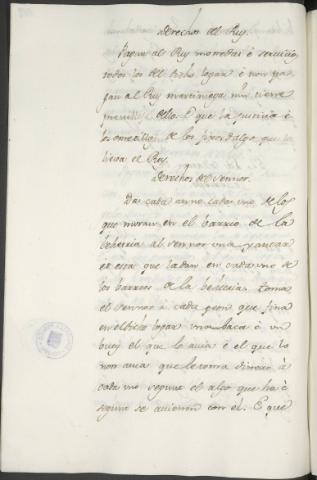 derechos del Rey.
Pagan al Rey monedas é servicios
todos los del dicho logar é non pa
gan al Rey martiniega nin tiene
previllejo dello. E que la justicia é
los omecillos de los fijosdalgo que los
lieva el Rey.
derechos del sennor.
Da cada anno cada uno de los
que moran en el barrio de la
behetria al sennor una yantar
é es esta que la dan en cada uno de
los barrios de la behetria. toma
el sennor á cada peon que fina
en el dicho logar una baca é un
buey el que lo avia é el que lo
non avia que le toma dineros á
cada uno segund el algo que ha é
segund se avienen con él. E que